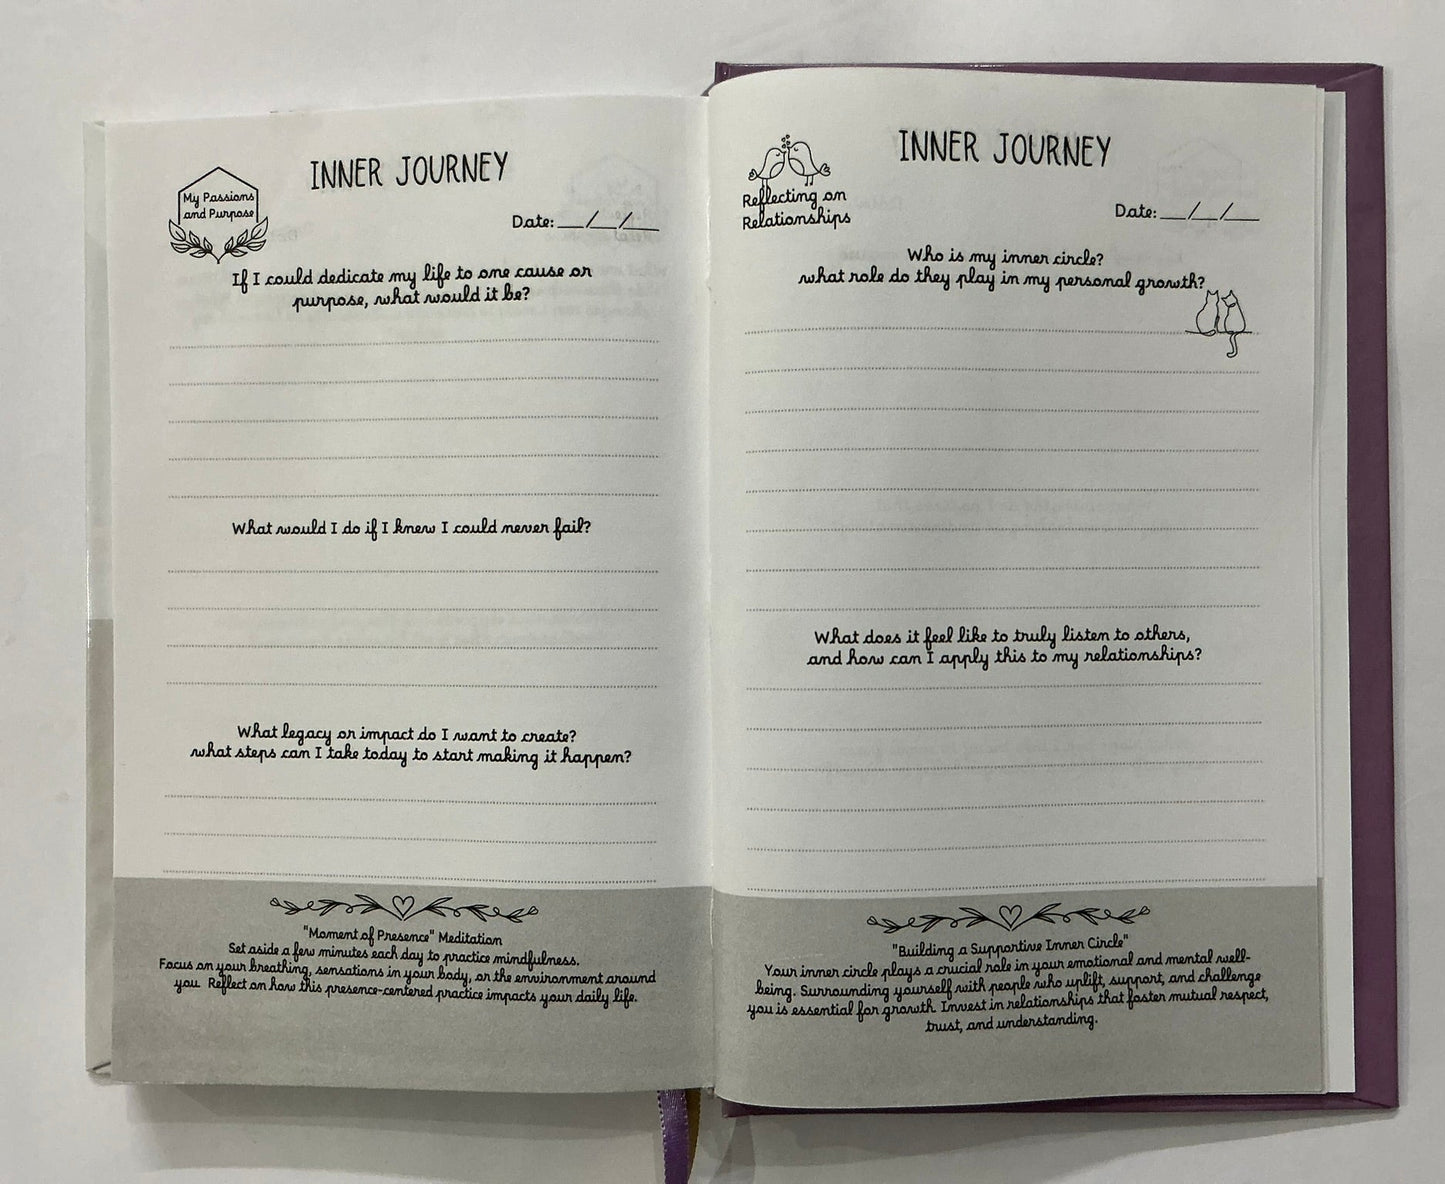 My Passions
and Purpose
INNER JOURNEY
Date: __/__/__
If I could dedicate my life to one cause or
purpose, what would it be?
What would I do if I knew I could never fail?
What legacy or impact do I want to create?
what steps can I take today to start making it happen?
"Moment of Presence" Meditation
Set aside a few minutes each day to practice mindfulness.
Focus on your breathing, sensations in your body, or the environment around
you Reflect on how this presence-centered practice impacts your daily life.
Reflecting on
Relationships
INNER JOURNEY
Date: __/__/__
Who is my inner circle?
what role do they play in my personal growth?
What does it feel like to truly listen to others,
and how can I apply this to my relationships?
"Building a Supportive Inner Circle"
Your inner circle plays a crucial role in your emotional and mental well-
being. Surrounding yourself with people who uplift, support, and challenge
you is essential for growth Invest in relationships that foster mutual respect,
trust, and understanding.